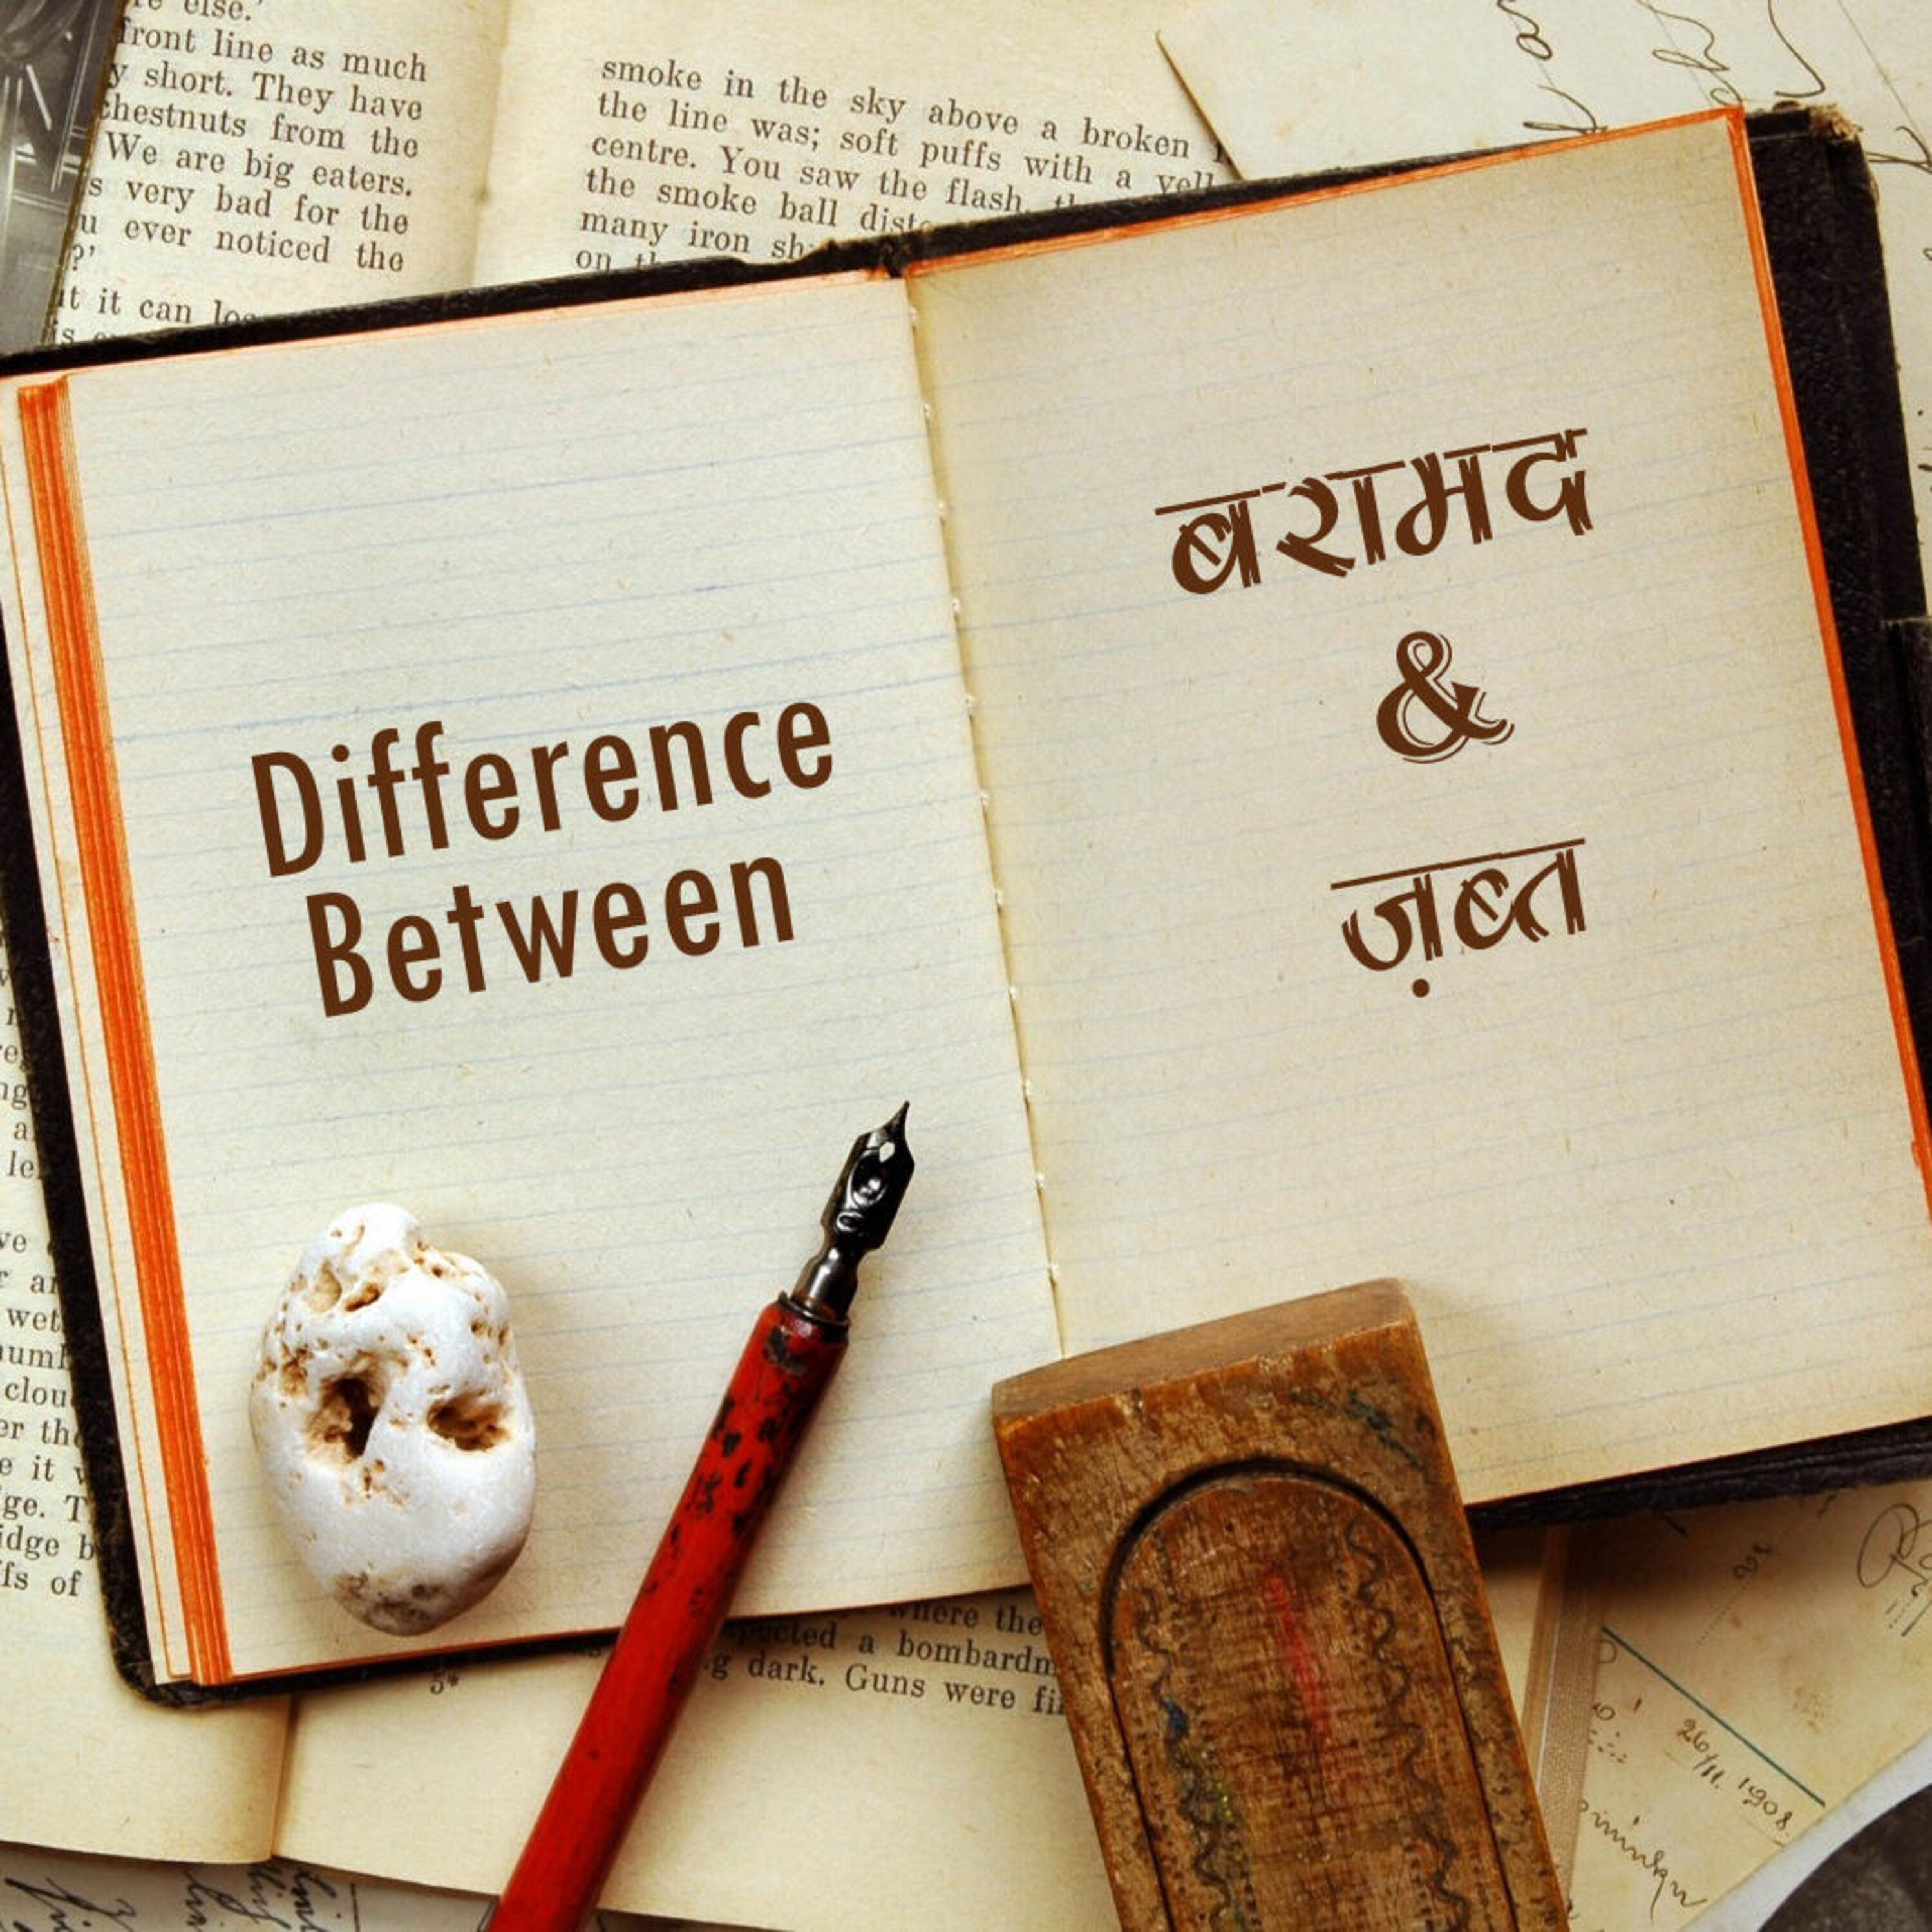 re else.'
front line as much
y short. They have
chestnuts from the
We are big eaters.
s very bad for the
u ever noticed the
?'
it it can
smoke in the sky above a broken
the line was; soft puffs with a
centre. You saw the flash,
the smoke ball
many iron
on
Difference
Between
बरामद
&
ज़ब्त
le
ve
wet
clou
er
e it
ge. T
idge b
fs of
where the
a bombardm
g dark. Guns were
5*
26/11. 1908.